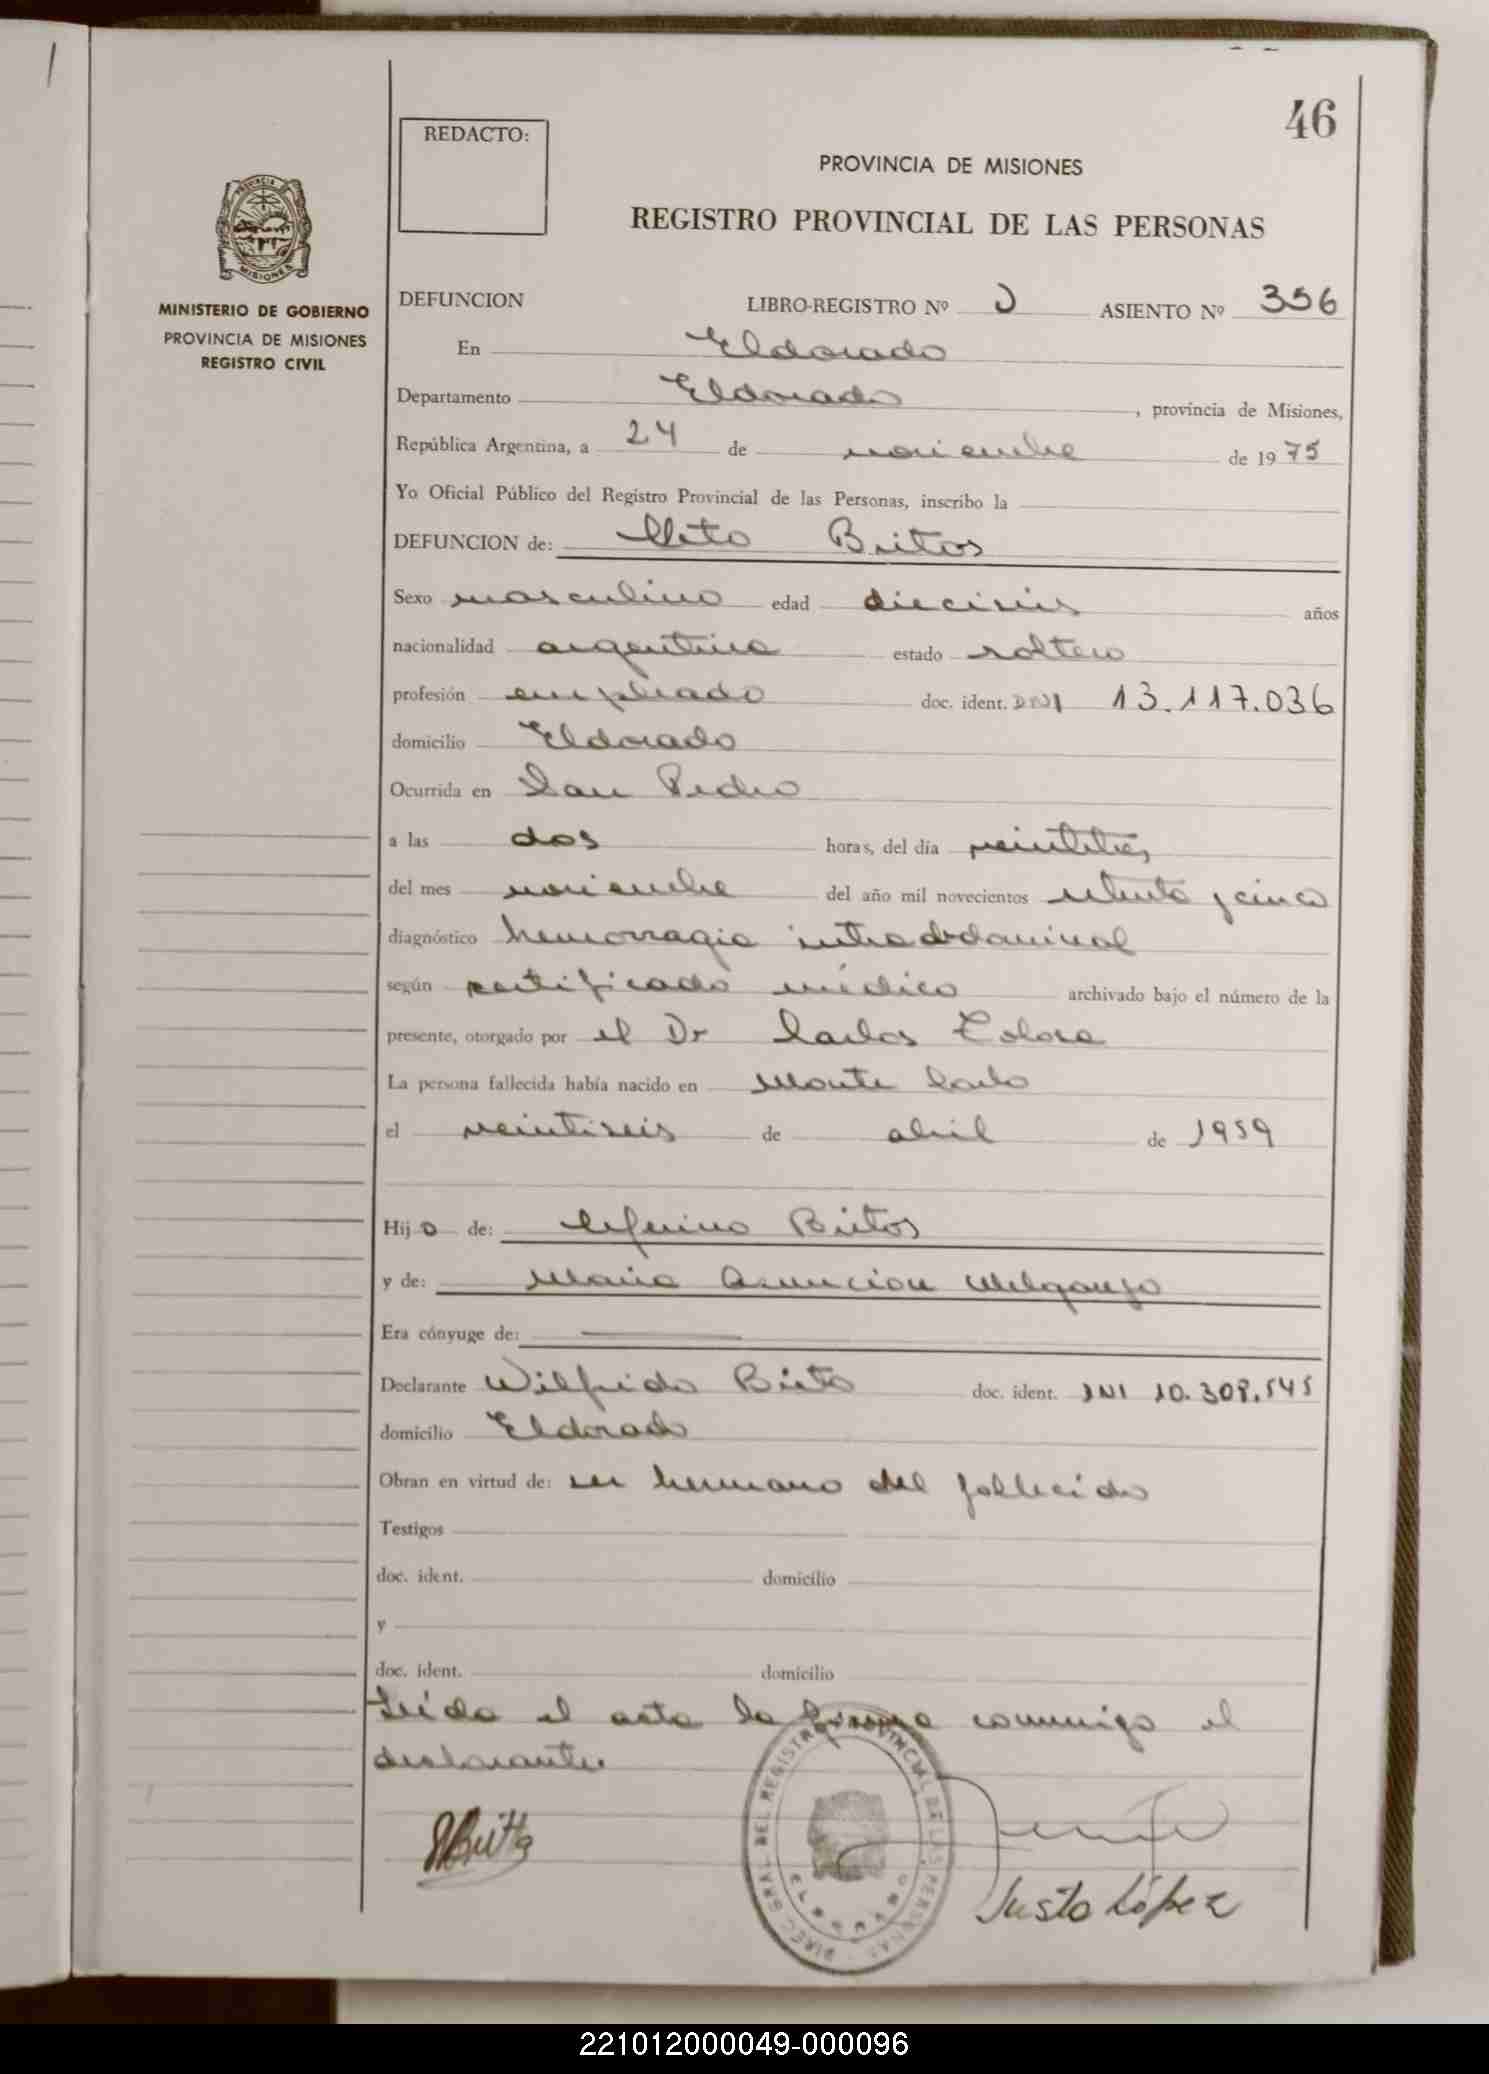 46
REDACTO:
PROVINCIA DE MISIONES
REGISTRO PROVINCIAL DE LAS PERSONAS
MINISTERIO DE GOBIERNO
PROVINCIA DE MISIONES
REGISTRO CIVIL
DEFUNCION LIBRO-REGISTRO Nº ASIENTO Nº 356
En Eldorado
Departamento Eldorado, provincia de Misiones,
República Argentina, a 24 de noviembre de 1975
Yo Oficial Público del Registro Provincial de las Personas, inscribo la
DEFUNCION de: Britos
Sexo masculino edad dieciseis años
nacionalidad argentina estado soltero
profesión empleado doc. ident. DNI 13.117.036
domicilio Eldorado
Ocurrida en San Pedro
a las dos horas, del día veintitres
del mes noviembre del año mil novecientos setenta y cinco
diagnóstico hemorragia intraabdominal
según certificado médico archivado bajo el número de la
presente, otorgado por el Dr Carlos
La persona fallecida había nacido en Monte Carlo
el veintiseis de abril de 1959
Hijo de: Britos
y de: Maria Asuncion
Era cónyuge de:
Declarante Wilfrido Brito doc. ident. DNI 10.309.545
domicilio Eldorado
Obran en virtud de: ser hermano del fallecido
Testigos
doc. ident. domicilio
y
doc. ident. domicilio
Leida el acta la firma conmigo el
declarante.
DIREC. GRAL. DEL REGISTRO PROVINCIAL DE LAS PERSONAS
ELDORADO
Justo López
221012000049-000096